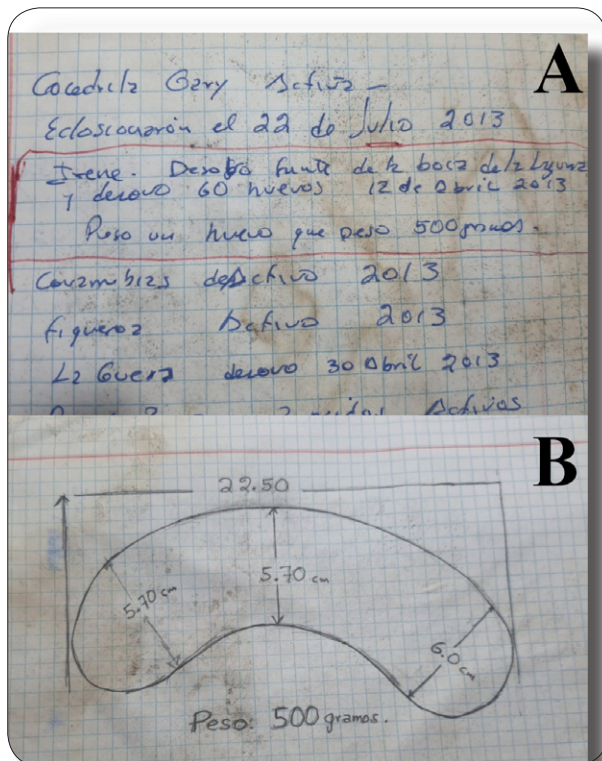 A
Cocodrila Gary Activa –
Eclosionarón el 22 de Julio 2013
Irene. Desovó frente de la boca de la Laguna
y desovo 60 huevos 12 de Abril 2013
Puso un huevo que peso 500 gramos.
de Activo 2013
Figueroa Activo 2013
La Guera desovo 30 Abril 2013
Activos
B
22.50
5.70 cm
5.70 cm
6.0 cm
Peso: 500 gramos.